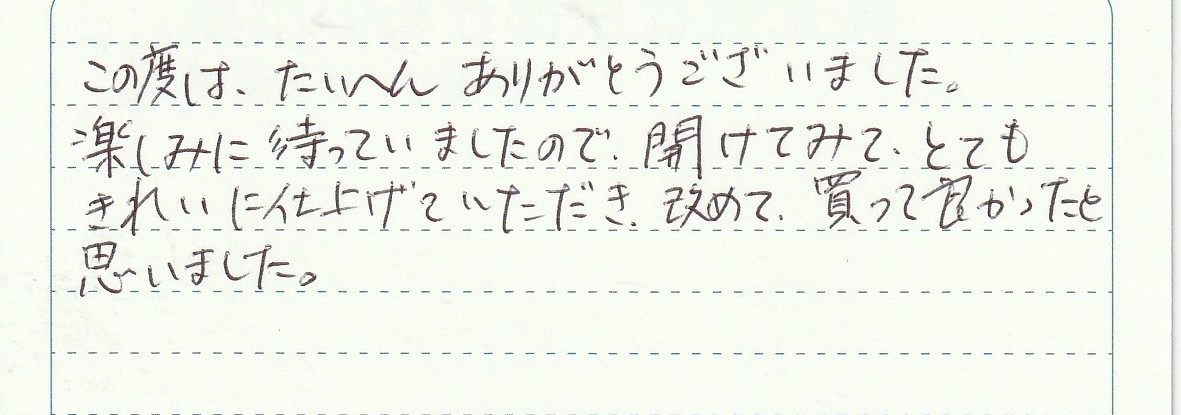 この度は、たいへん ありがとうございました。
楽しみに待っていましたので、開けてみて、とても
きれいに仕上げていただき、改めて、買って良かったと
思いました。